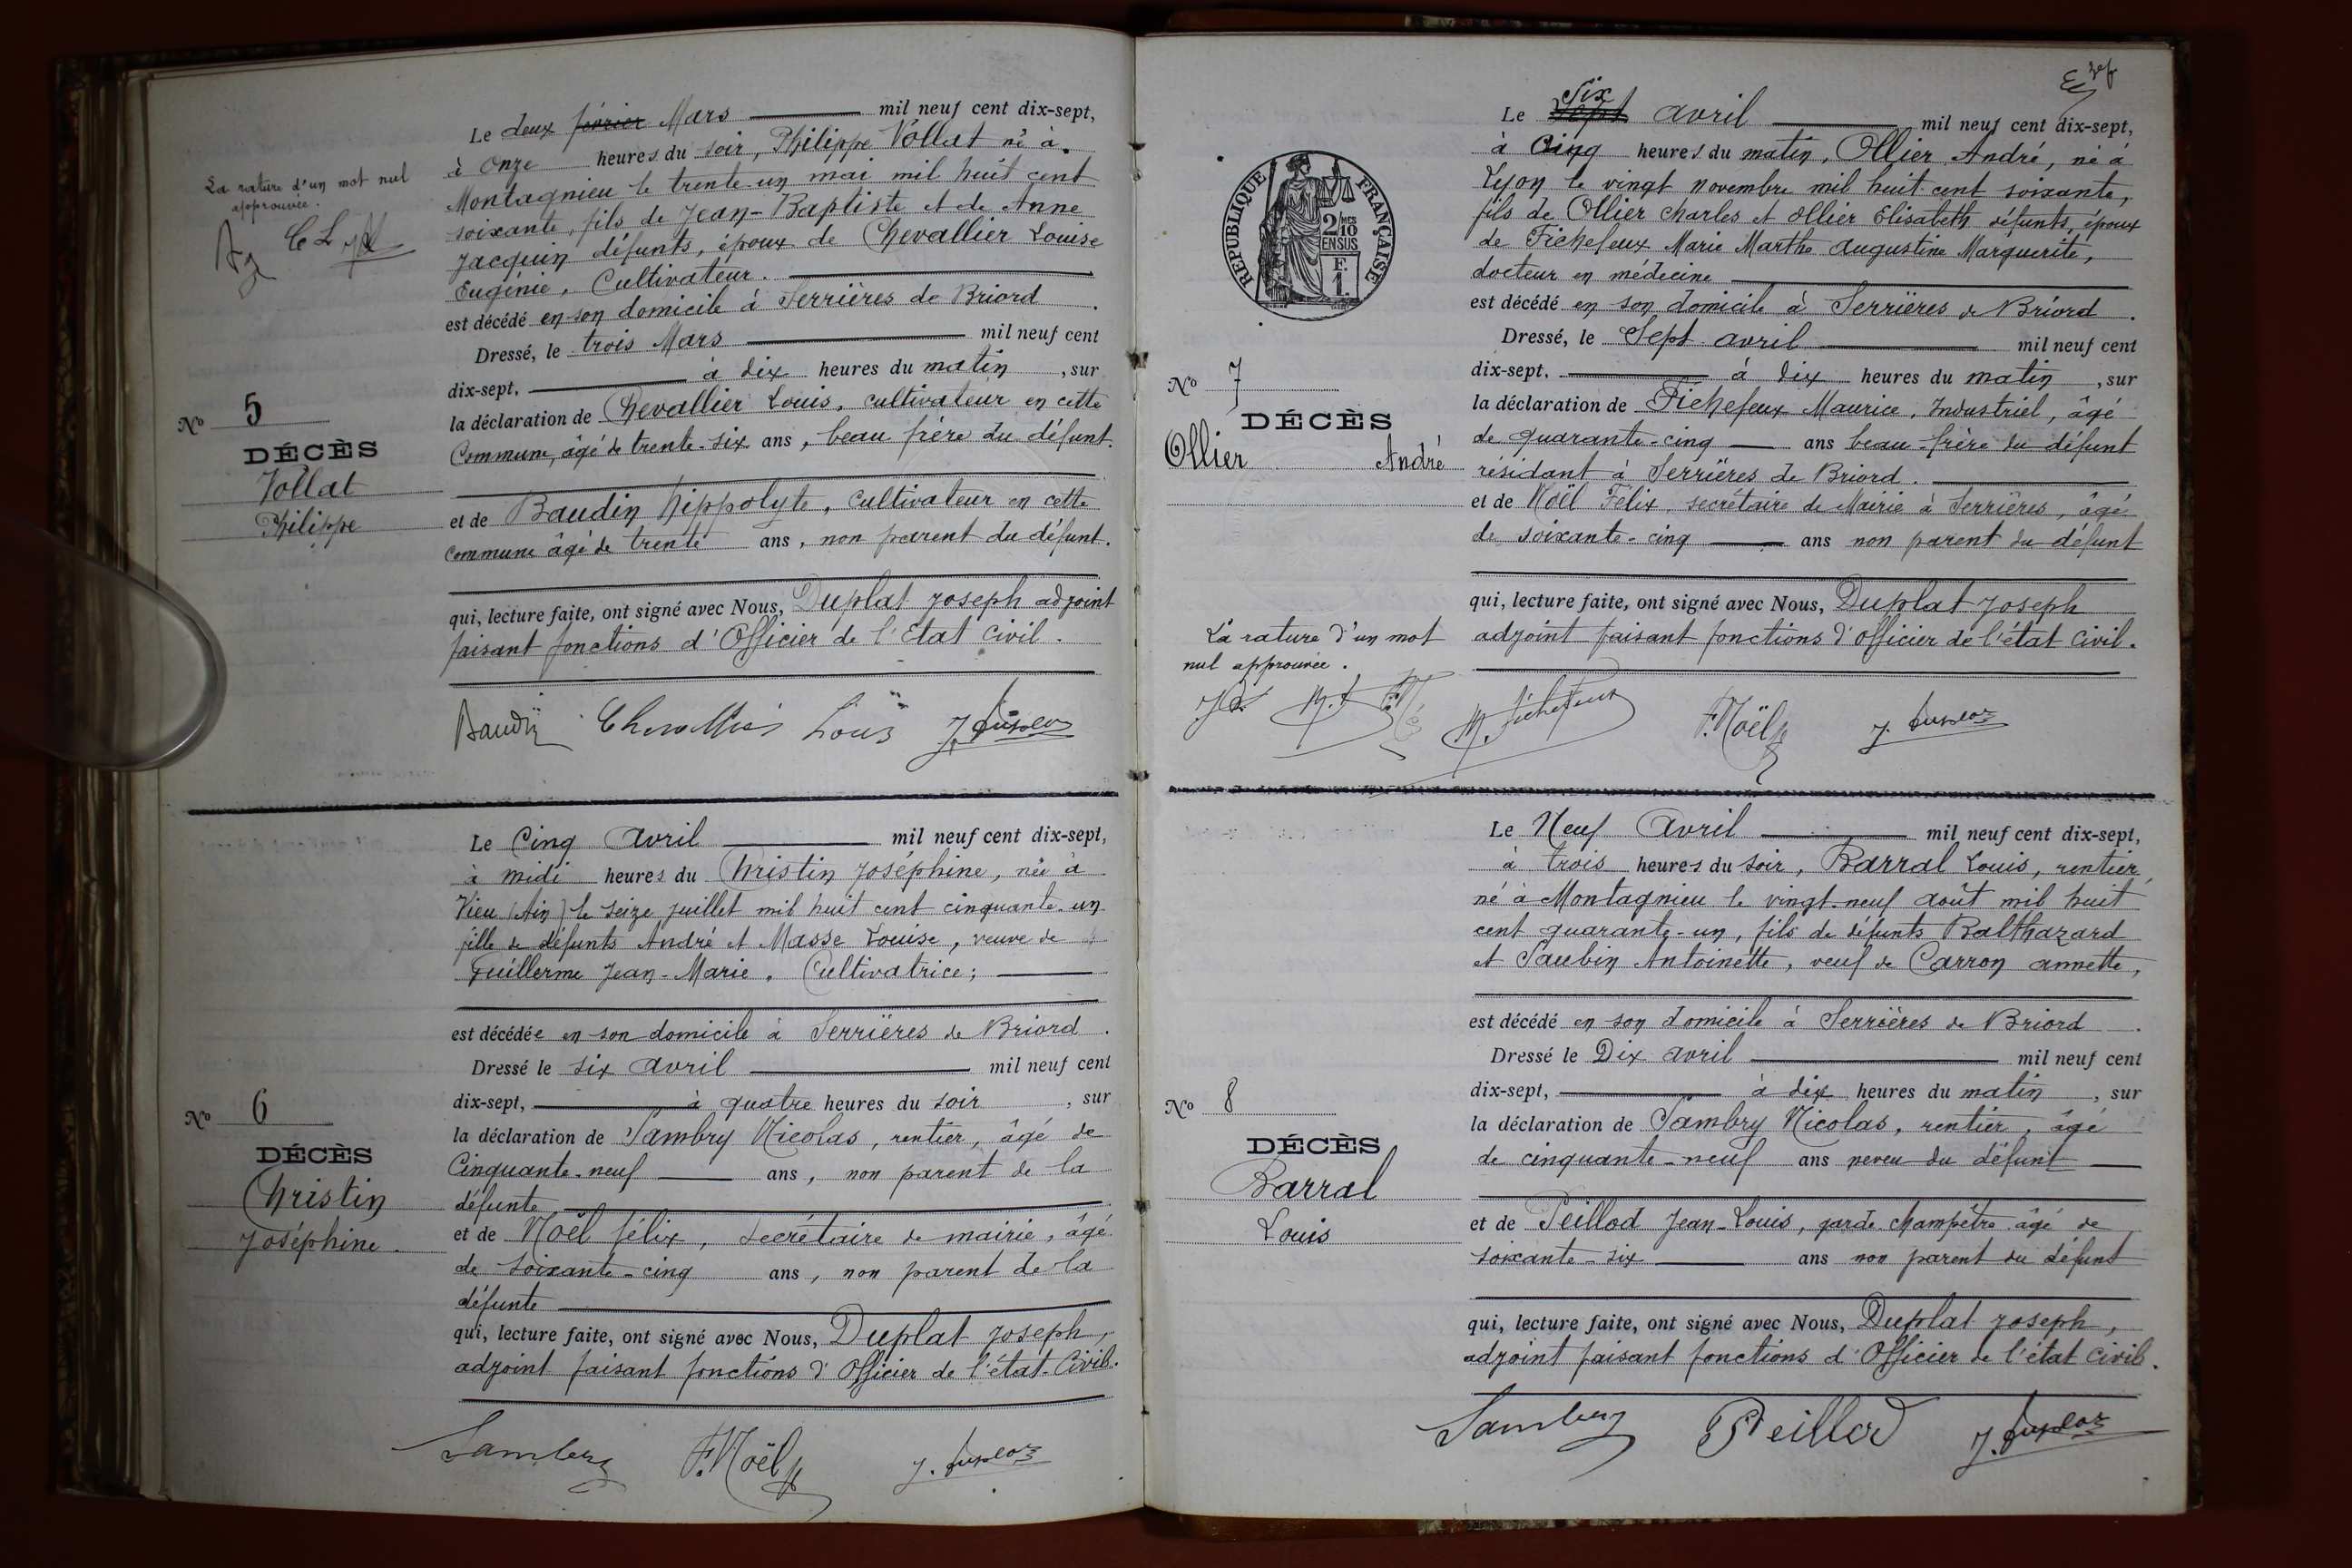 La rature d'un mot nul
approuvée.
C L JD
Le deux février Mars mil neuf cent dix-sept,
à onze heures du soir, Philippe Vollat né à
Montagnieu le trente-un mai mil huit cent
soixante, fils de Jean-Baptiste et de Anne
Jacquin défunts, époux de Chevallier Louise
Eugénie, Cultivateur.
est décédé en son domicile à Serrières de Briord.
Dressé, le trois Mars mil neuf cent
dix-sept, à dix heures du matin, sur
la déclaration de Chevallier Louis, cultivateur en cette
Commune, âgé de trente-six ans, beau frère du défunt.
et de Baudin Hippolyte, cultivateur en cette
commune âgé de trente ans, non parent du défunt.
qui, lecture faite, ont signé avec Nous, Duplat Joseph adjoint
faisant fonctions d'Officier de l'Etat Civil.
Baudin Chevallier Louis J. Duplat
No 5
DÉCÈS
Vollat
Philippe
Le Cinq Avril mil neuf cent dix-sept,
à midi heures du Christin Joséphine, née à
Vieu (Ain) le seize juillet mil huit cent cinquante-un
fille de défunts André et Masse Louise, veuve de
Guillerme Jean-Marie. Cultivatrice;
est décédée en son domicile à Serrières de Briord.
Dressé le six avril mil neuf cent
dix-sept, à quatre heures du soir, sur
la déclaration de Sambry Nicolas, rentier, âgé de
Cinquante-neuf ans, non parent de la
défunte
et de Noël félix, Secrétaire de mairie, âgé
de soixante-cinq ans, non parent de la
défunte
qui, lecture faite, ont signé avec Nous, Duplat Joseph,
adjoint faisant fonctions d'Officier de l'état-Civil.
Sambry F. Noël J. Duplat
No 6
DÉCÈS
Christin
Joséphine.
RÉPUBLIQUE FRANÇAISE
2/10 EN SUS
F. 1.
Le Sept Six avril mil neuf cent dix-sept,
à Cinq heures du matin, Ollier André, né à
Lyon le vingt novembre mil huit cent soixante,
fils de Ollier Charles et Ollier Elisabeth défunts, époux
de Fichefeux Marie Marthe Augustine Marguerite,
docteur en médecine
est décédé en son domicile à Serrières de Briord.
Dressé, le Sept avril mil neuf cent
dix-sept, à dix heures du matin, sur
la déclaration de Fichefeux Maurice, Industriel, âgé
de quarante-cinq ans beau-frère du défunt
résidant à Serrières de Briord.
et de Noël Félix, secrétaire de Mairie à Serrières, âgé
de soixante-cinq ans non parent du défunt
qui, lecture faite, ont signé avec Nous, Duplat Joseph
adjoint faisant fonctions d'Officier de l'état Civil.
No 7
DÉCÈS
Ollier André
La rature d'un mot
nul approuvée.
JD M.F
M. Fichefeux F. Noël J. Duplat
Le Neuf Avril mil neuf cent dix-sept,
à trois heures du soir, Barral Louis, rentier,
né à Montagnieu le vingt-neuf août mil huit
cent quarante-un, fils de défunts Balthazard
et Saubin Antoinette, veuf de Carron annette,
est décédé en son domicile à Serrières de Briord.
Dressé le Dix avril mil neuf cent
dix-sept, à dix heures du matin, sur
la déclaration de Sambry Nicolas, rentier, âgé
de cinquante-neuf ans neveu du défunt
et de Peillod Jean-Louis, garde champêtre âgé de
soixante-six ans non parent du défunt
qui, lecture faite, ont signé avec Nous, Duplat Joseph,
adjoint faisant fonctions d'Officier de l'état Civil.
Sambry Peillod J. Duplat
No 8
DÉCÈS
Barral
Louis